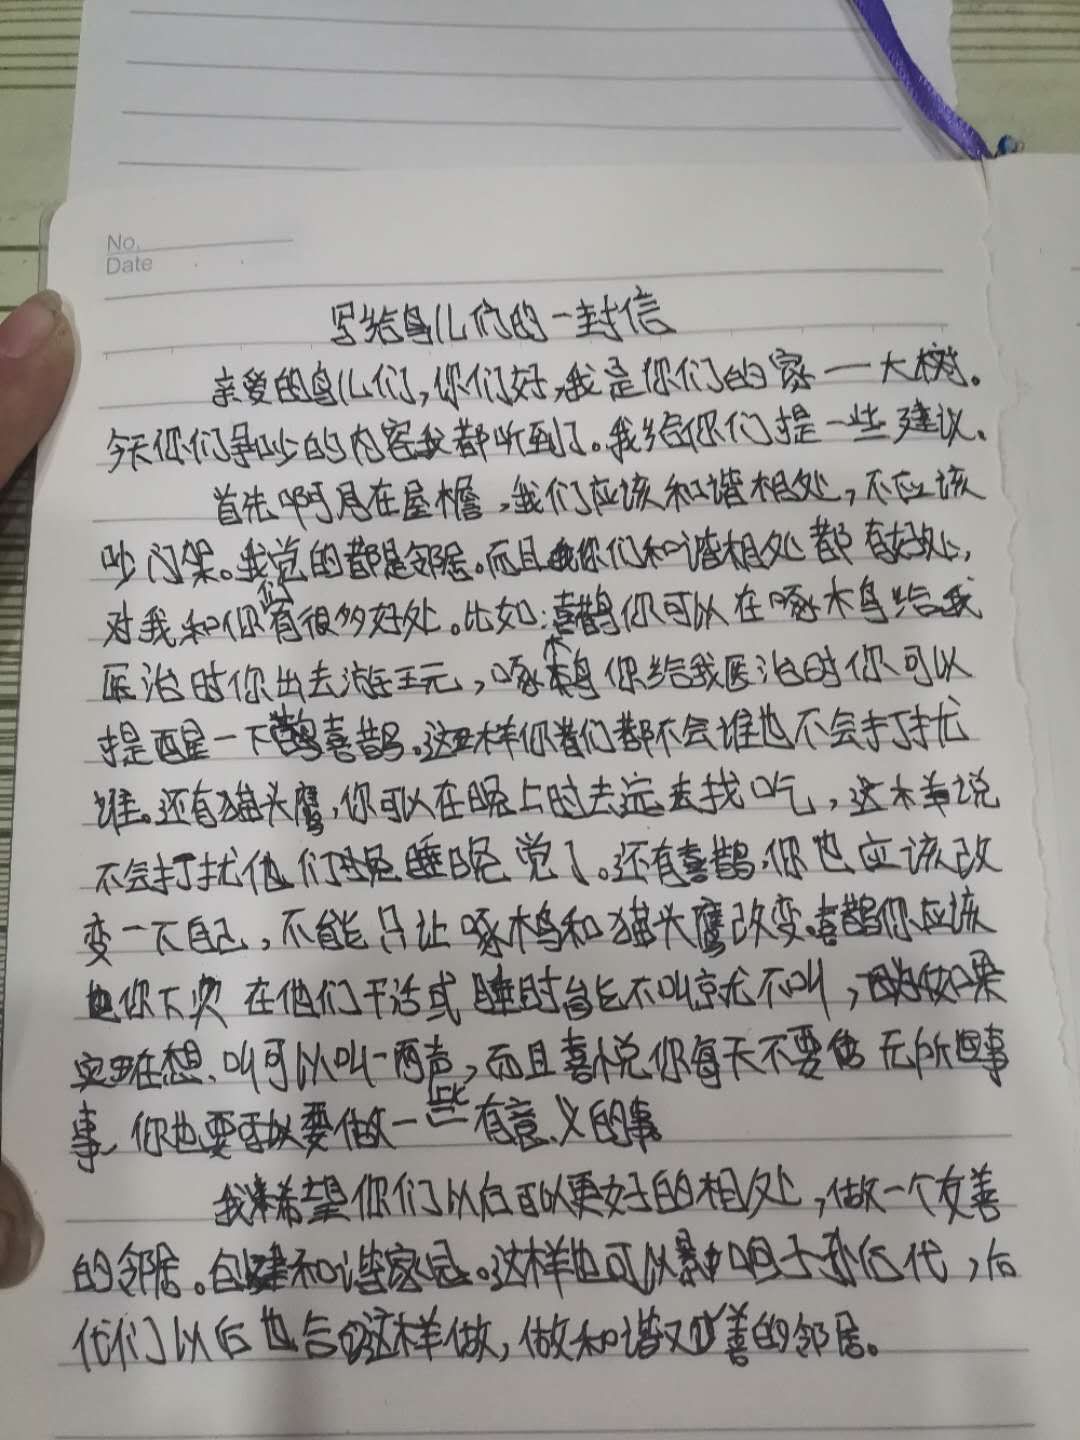 No.
Date
写给鸟儿们的一封信
亲爱的鸟儿们，你们好，我是你们的家一大树。
今天你们争吵的内容我都听到了。我给你们提一些建议。
首先啊，在屋檐，我们应该和谐相处，不应该
吵门架。我觉的都是邻居。而且你们和谐相处都有好处，
对我和你们有很多好处。比如：喜鹊你可以在啄木鸟给我
医治时你出去游玩，啄木鸟你给我医治时你可以
提醒一下喜鹊。这样你们都不会谁也不会打扰
谁。还有猫头鹰，你可以在晚上时去远去找吃，这样说
不会打扰他们睡觉了。还有喜鹊，你也应该改
变一下自己，不能只让啄木鸟和猫头鹰改变。喜鹊你应该
你下次在他们干活或睡时能不叫就不叫，如果
实在想叫可以叫一两声，而且喜悦你每天不要无所事
事，你也要可以要做一些有意义的事
我希望你们以后可以更好的相处，做一个友善
的邻居。创建和谐家园。这样也可以影响子孙后代，后
代们以后也会这样做，做和谐又友善的邻居。